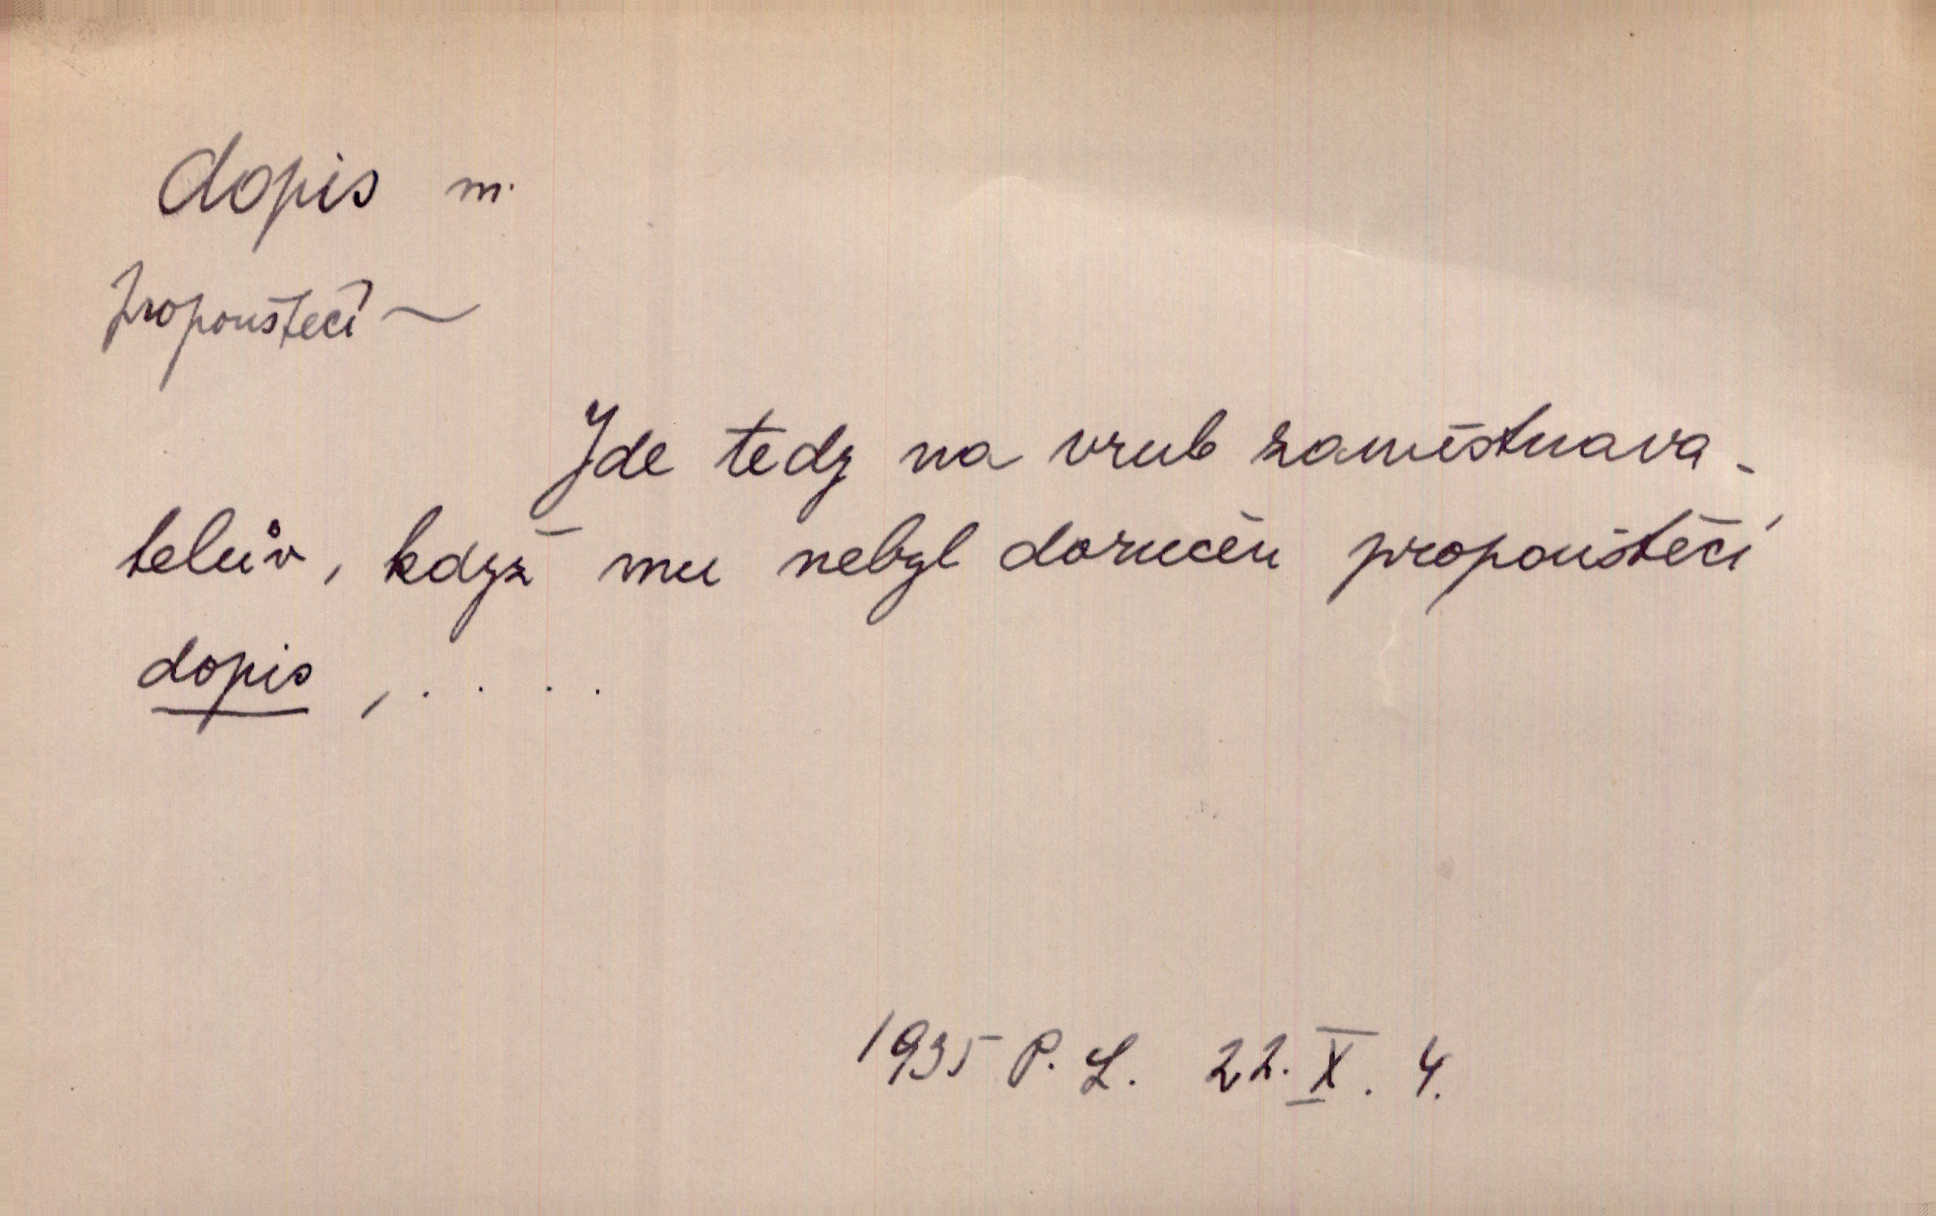 dopis m.
propouštecí ~
Jde tedy na vrub zaměstnava-
telův, když mu nebyl doručen propouštěcí
dopis, . . . .
1935 P. L. 22. X. 4.